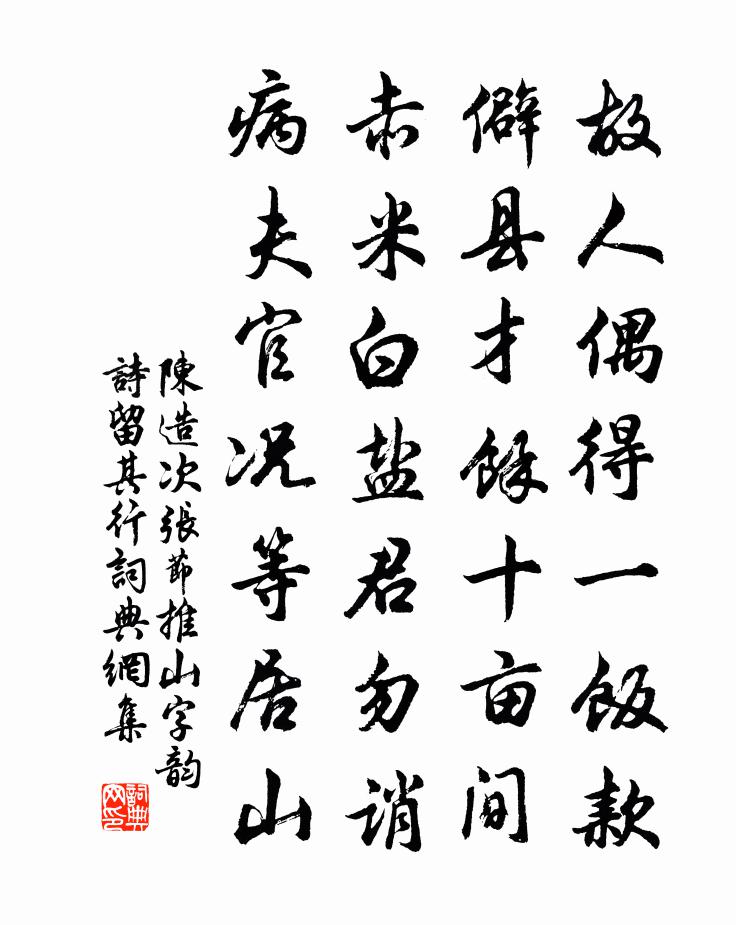 故人偶得一飯款
僻县才餘十亩间
赤米白盐君勿誚
病夫官况等居山
陳造次張節推山字韵
詩留其行詞典網集
詞典网印